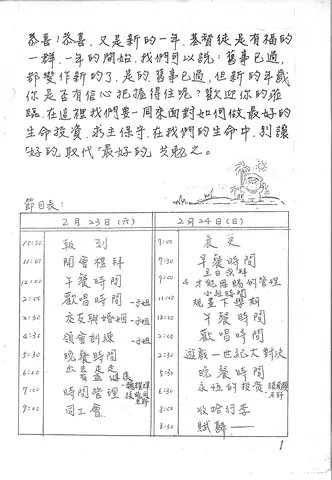 恭喜!恭喜.又是新的一年.基督徒是有福的
一群.一年的開始.我們可以說:舊事已過,
都變作新的了.是的.舊事已過,但新的年歲
你是否有信心把握得住呢?歡迎你的蒞
臨.在這裡我們要一同來面對如何做最好的
生命投資.求主保守.在我們的生命中.別讓
「好的」取代「最好的」共勉之。
節目表:
2月23日(六) 2月24日(日)
10:30 報到 7:00 晨更
11:00 開會禮拜 7:30 早餐時間
主日崇拜
12:00 午餐時間 9:00 才能恩賜的管理
小組時間
2:00 歡唱時間 11:00
2:30 交友與婚姻 12:00 午餐時間
4:30 領會訓練 2:00 歡唱時間
5:30 晚餐時間 2:30 遊戲一世紀大對決
6:00 出去走走 5:30 晚餐時間
7:00 時間管理 6:30 永恆的投資
9:00 同工會 8:00 收拾行李
8:30 賦歸——
1